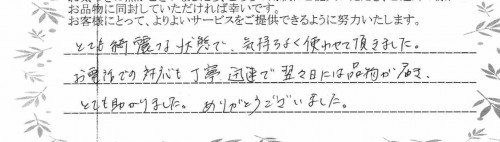 お品物に同封していただければ幸いです。
お客様にとって、よりよいサービスをご提供できるように努力いたします。
とても綺麗な状態で、気持ちよく使わせて頂きました。
お電話での対応も丁寧 迅速で翌々日には品物が届き、
とても助かりました。ありがとうございました。